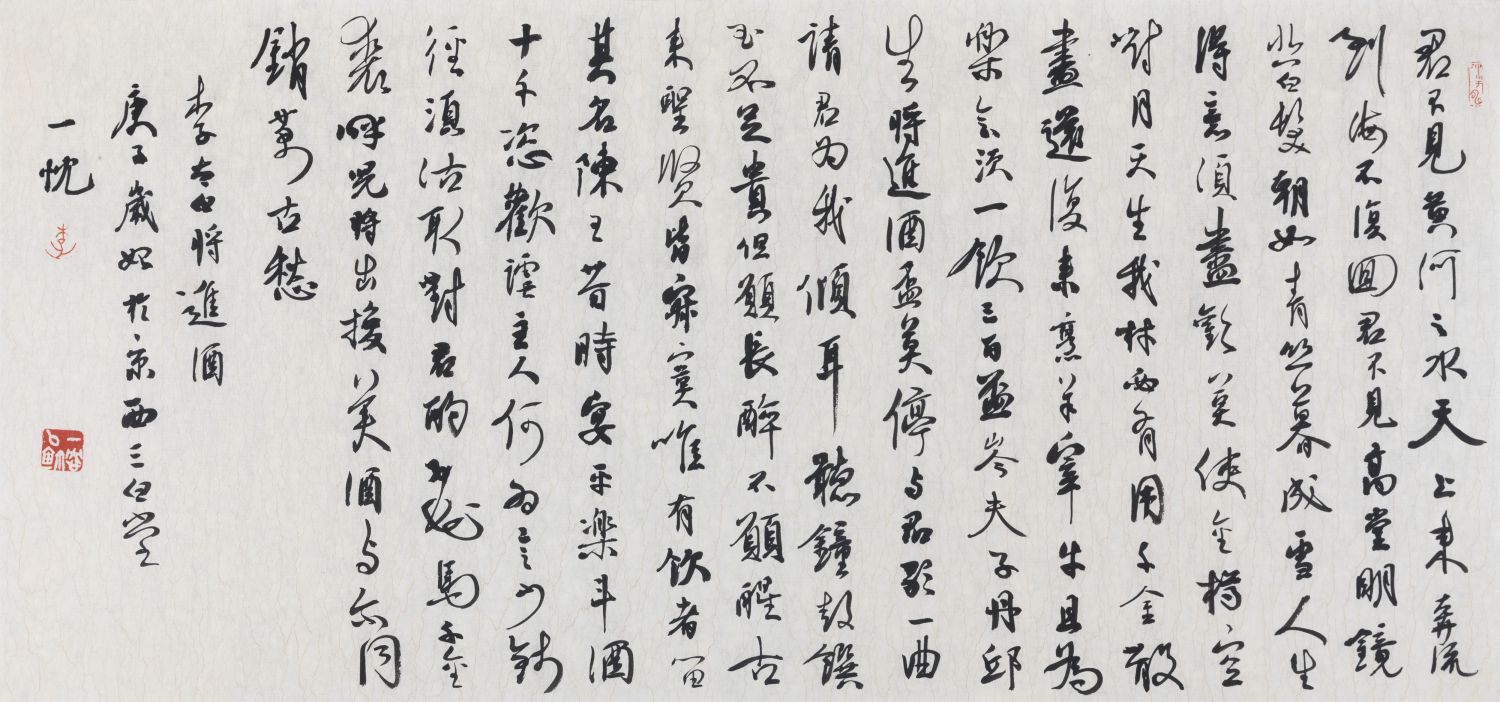 君不見黃河之水天上来奔流
到海不復回君不見高堂明鏡
悲白髮朝如青丝暮成雪人生
得意須盡歡莫使金樽空
對月天生我材必有用千金散
盡還復来烹羊宰牛且為
樂会須一飲三百盃岑夫子丹邱
生將進酒盃莫停与君歌一曲
請君为我傾耳聽鐘鼓饌
玉不足貴但願長醉不願醒古
来聖賢皆寂寞唯有飲者留
其名陳王昔時宴平樂斗酒
十千恣歡謔主人何为言少錢
徑須沽取對君酌五花馬千金
裘呼児將出換美酒与尔同
銷萬古愁
李太白將進酒
庚子歲始於京西三白堂
一忱
李